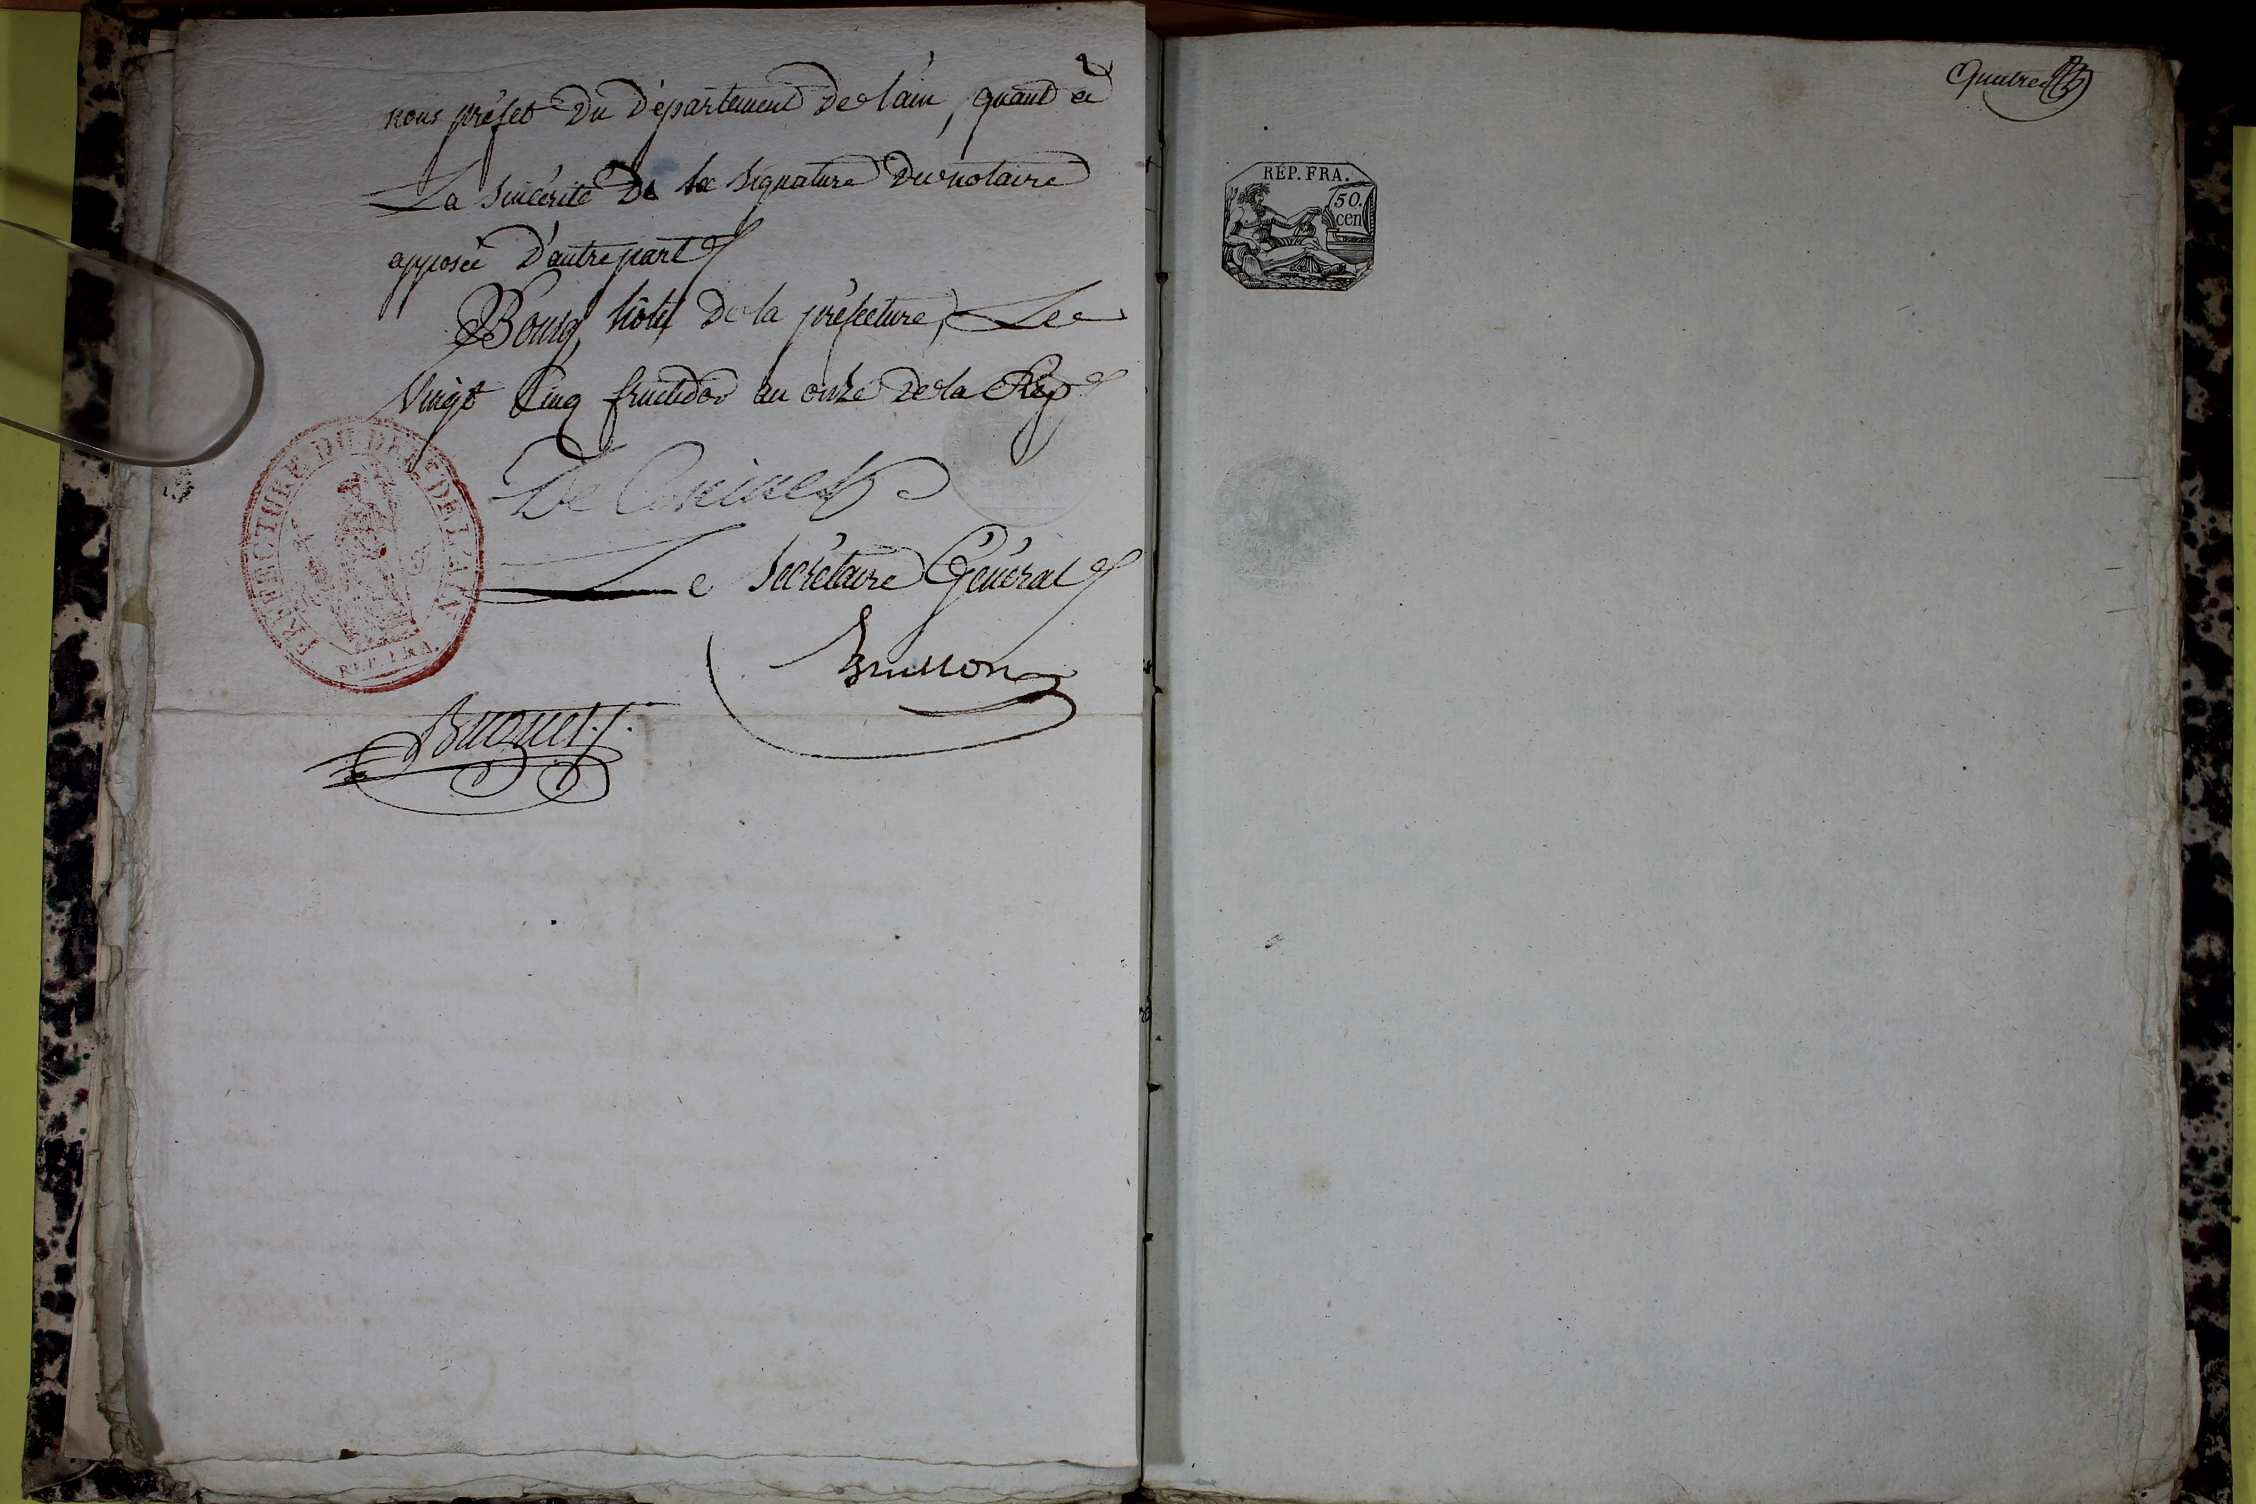 nous préfet Du Département de l'ain, quant à
La sincérité De la signature Du notaire
apposée D'autre part
Bourg, hôtel De la préfecture, Le
Vingt Cinq fructidor an onze de la Rép.
Le Secrétaire Général
Buisson
PREFECTURE DU DEPT DE L'AIN
REP. FRA.
quatre
RÉP. FRA.
50.
cen